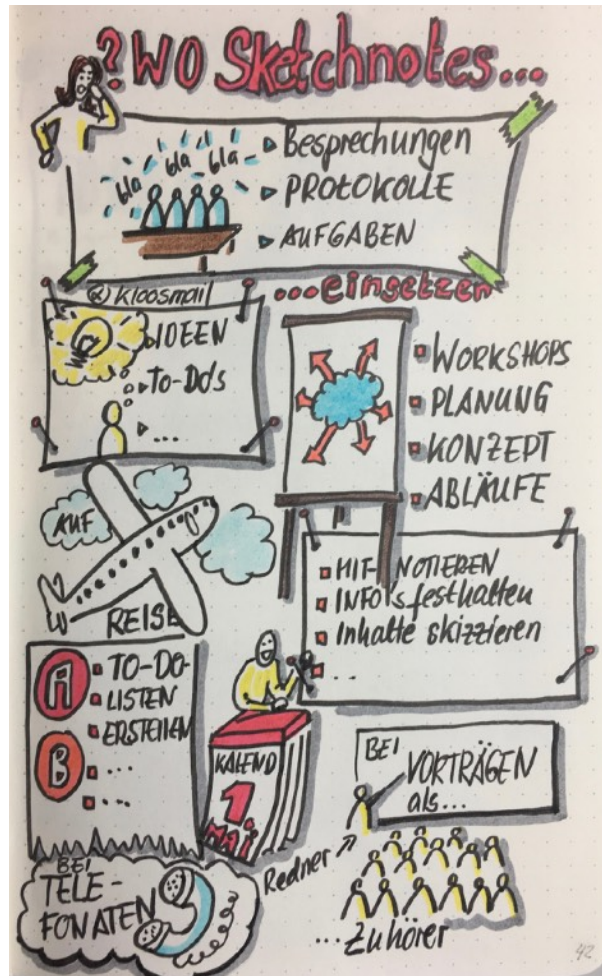 ? WO Sketchnotes...
bla bla bla bla
Besprechungen
PROTOKOLLE
AUFGABEN
...einsetzen
@kloosmail
IDEEN
TO-DO's
...
WORKSHOPS
PLANUNG
KONZEPT
ABLÄUFE
AUF
REISE
MIT-NOTIEREN
INFO's festhalten
Inhalte skizzieren
...
A
TO-DO-
LISTEN
ERSTELLEN
B
...
...
KALEND
1.
MAI
BEI
VORTRÄGEN
als...
Redner
...Zuhörer
BEI
TELE-
FONATEN
42